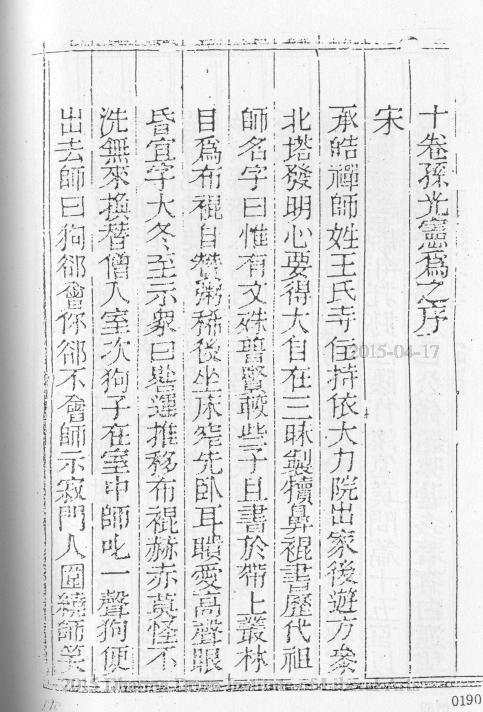 十卷孫光憲爲之序
宋
承皓禪師姓王氏寺住持依大力院出家後遊方參
北塔發明心要得大自在三昧製犢鼻裩書歷代祖
師名字曰惟有文殊普賢較些子且書於帶上叢林
目爲布裩自贊粥稀後坐床窄先臥耳聵愛高聲眼
昏宜字大冬至示衆曰晷運推移布裩赫赤莫怪不
洗無來換替僧入室次狗子在室中師叱一聲狗便
出去師曰狗卻會你卻不會師示寂門人圍繞師笑
2015-04-17
0190